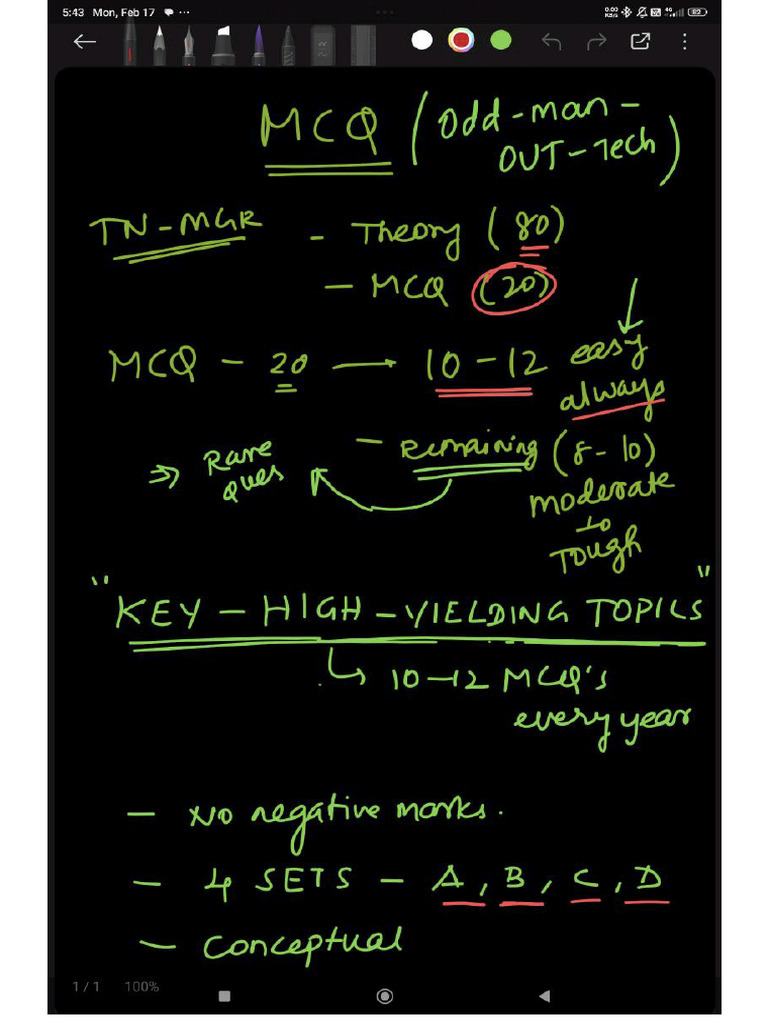 5:43 Mon, Feb 17
0.00 KB/S 4G 82
MCQ (Odd-man-
OUT-Tech)
TN-MGR - Theory (80)
- MCQ (20)
MCQ - 20 → 10-12 easy
always
- Remaining (8-10)
⇒ Rare
ques
moderate
to
TOUGH
"KEY - HIGH-YIELDING TOPICS"
↳ 10-12 MCQ's
every year
- No negative marks.
- 4 SETS - A, B, C, D
- Conceptual
1/1 100%